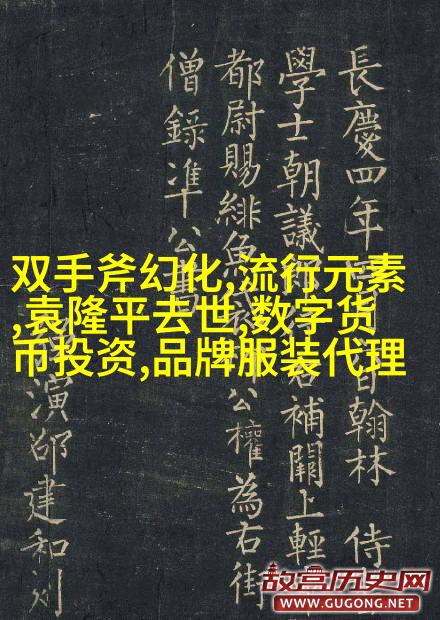 長慶四年 翰林 侍
學士朝議 補闕上輕
都尉賜緋魚 公權為右街
僧錄准公書
演邵建和刻
双手斧幻化,流行元素
,袁隆平去世,数字货
币投资,品牌服装代理
故宫历史网
WWW.GUGONG.NET